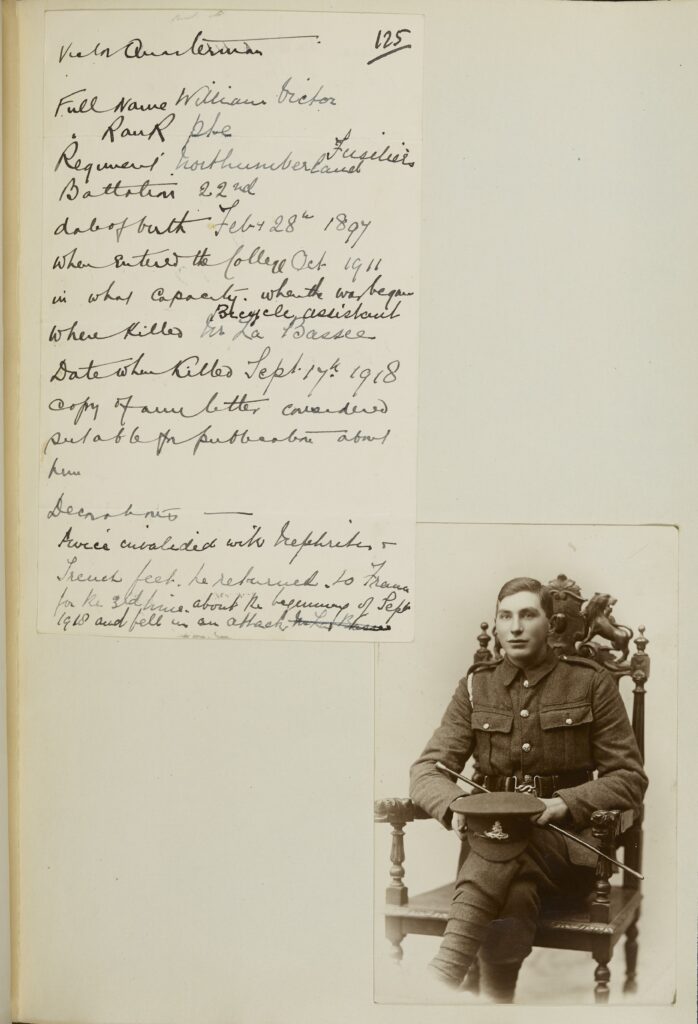 125
Victor Quarterman
Full Name William Victor
" Rank Pte
Regiment Northumberland Fusiliers
Battalion 22nd
date of birth Feby 28th 1897
when entered the College Oct 1911
in what capacity. when the war began
Bicycle assistant
where killed Nr La Bassee
Date when killed Sept. 17th 1918
copy of any letter considered
suitable for publication about
him
Decorations —
Twice invalided with Nephritis &
Trench feet. he returned to France
for the 3rd time about the beginning of Sept
1918 and fell in an attack